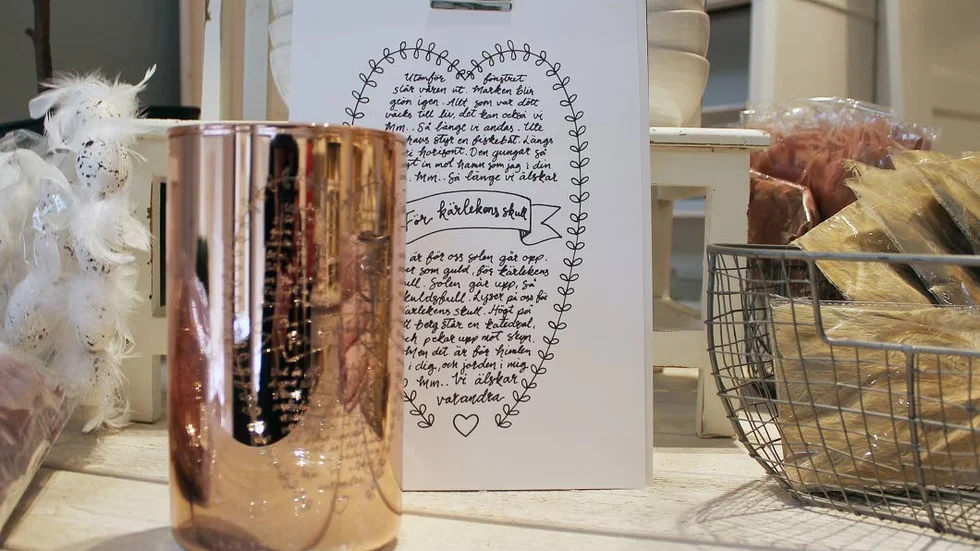 Utanför fönstret
slår våren ut. Marken blir
grön igen. Allt som var dött
väcks till liv, det kan också vi
Mm.. Så länge vi andas. Ute
havs styr en fiskebåt. Längs
horisont. Den gungar så
in mot hamn som jag i din
Mm.. Så länge vi älskar
För kärlekens skull
är för oss solen går opp.
som guld, för kärlekens
Solen går upp, så
skuldsfull. Lyser på oss för
kärlekens skull. Högt på
berg står en katedral,
och pekar upp mot skyn.
Men det är för himlen
i dig, och jorden i mig
Mm.. Vi älskar
varandra